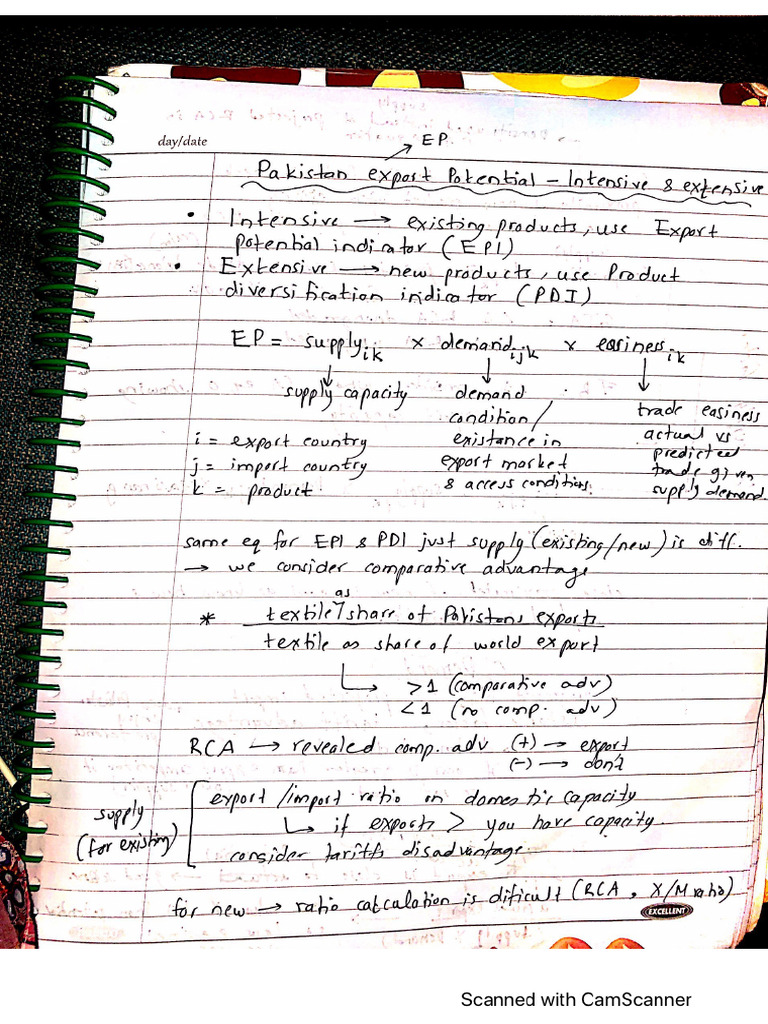 day/date
EP
Pakistan export Potential – Intensive & extensive
• Intensive → existing products, use Export
potential indicator (EPI)
• Extensive → new products, use Product
diversification indicator (PDI)
EP = supply ik × demand ijk × easiness ik
supply capacity
demand
condition/
existance in
export market
& access conditions.
trade easiness
actual vs
predicted
trade given
supply demand
i = export country
j = import country
k = product.
same eq for EPI & PDI just supply (existing/new) is diff.
→ we consider comparative advantage
as
* textile share of Pakistans exports
textile as share of world export
>1 (comparative adv)
<1 (no comp. adv)
RCA → revealed comp. adv (+) → export
(-) → don't
supply
(for existing)
export/import ratio on domestic capacity
if exports > you have capacity.
consider tariffs disadvantage
for new → ratio calculation is dificult (RCA, X/M ratio)
EXCELLENT
Scanned with CamScanner